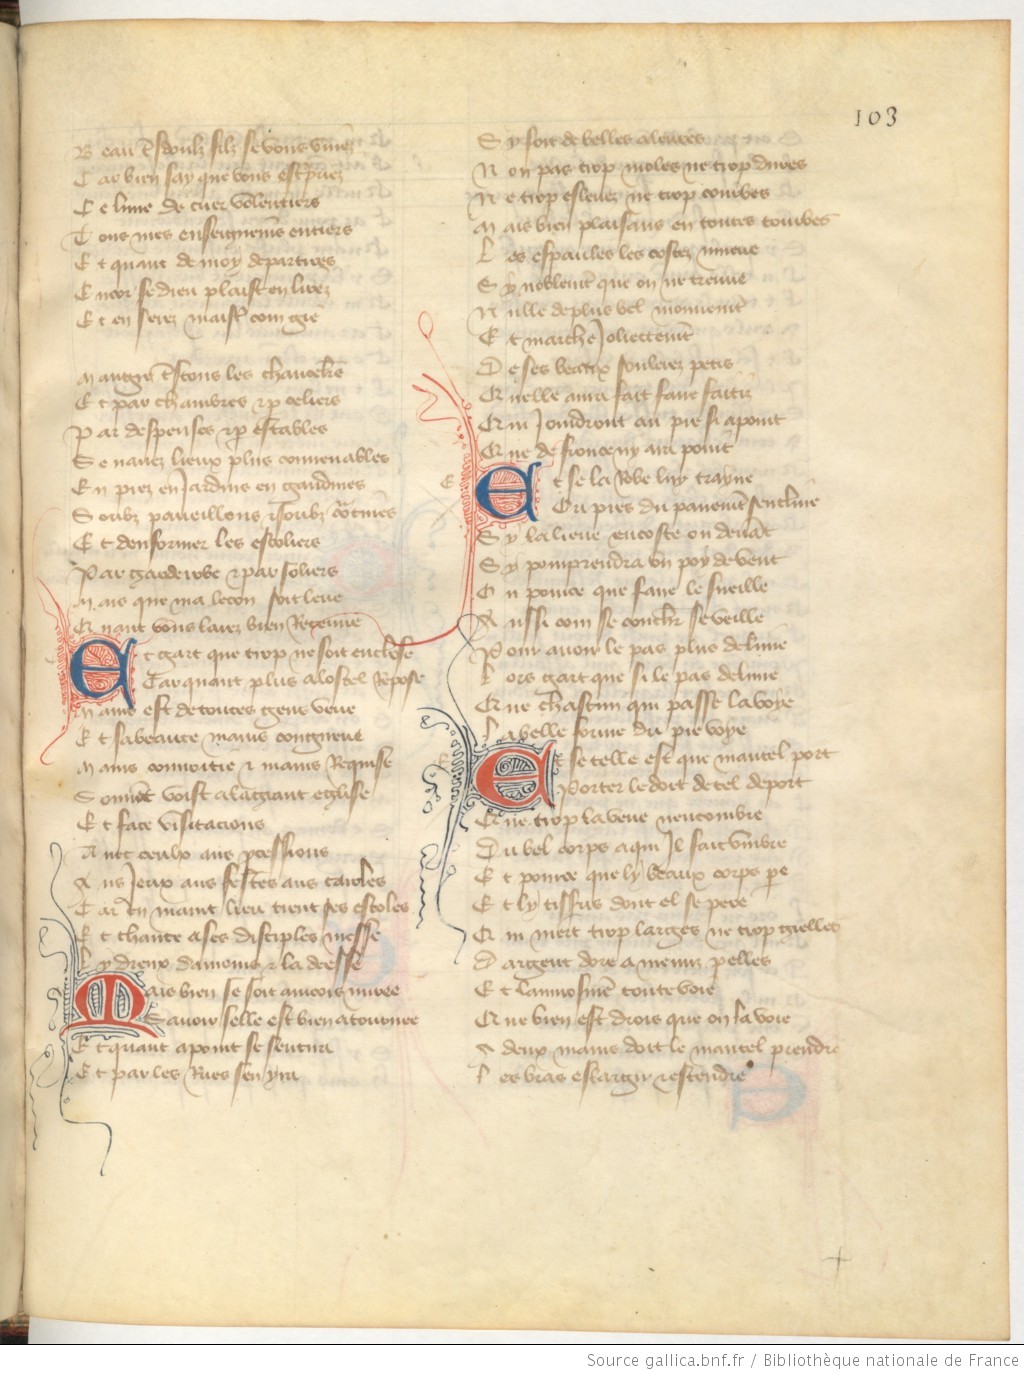 103
Beau tresdoulz filz se vous viuez
Car bien say que vous est priez
Ce liure de cuer voulentiers
Tous mes enseignemens entiers
Et quant de moy departires
Encor se dieu plaist en lirez
Et en serez maistre com gie
Maugre trestous les chanceliers
Et par chambres et par celiers
Par despenses et par estables
Se nauez lieux plus conuenables
En prez en Jardins en gaudines
Soubz paueillons et soubz courtines
Et denformer les escoliers
Par garderobe et par soliers
Mais que ma lecon soit leue
Quant vous laurez bien Retenue
Et gart que trop ne soit enclose
Car quant plus a lostel Repose
Mains est de toutes gens veue
Et sa beaute mains congneue
Mains couuoitie et mains Requise
Souuent voist a la grant eglise
Et face visitacions
A nuc ceulx aus processions
Aus Jeux aus festes aus caroles
Car en maint lieu tient ses escoles
Et chante a ses disciples messe
Ly dreux damours et la deesse
Mais bien se soit aincois miree
Sauoir selle est bien atournee
Et quant a point se sentira
Et par les Rues sen yra
Sy soit de belles aleures
Non pas trop moles ne trop dures
Ne trop esleuez ne trop courbes
Mais bien plaisans en toutes tourbes
Les espaules les costez mueue
Sy noblement que on ne treuue
Nulle de plus bel mouuement
Et marche Joliettement
De ses beaux soulerez petis
Quelle aura fait faire faitiz
Qui Joindront au pie si a point
Que de fronce ny ait point
Et se la Robe luy trayne
Ou pres du pauement sencline
Sy la lieue encoste ou deuant
Sy pour prendra vn poy de vent
Ou pource que faire le sueille
Aussi com se couchier se veille
Pour auoir le pas plus deliure
Lors gart que si le pas deliure
Que chascun qui passe la voye
La belle forme du pie voye
Et se telle est que mantel port
Porter le doit de tel deport
Que trop la veue nencombre
Du bel corps a qui Il fait vmbre
Et pource que ly beaux corps pere
Et ly tissus dont el se pere
Qui niert trop larges ne trop grelles
Dargent dore a menuz perlles
Et laumosniere toute voie
Que bien est drois que on la voie
A deux mains doit le mantel prendre
Les bras eslargir et estendre
Source gallica.bnf.fr / Bibliothèque nationale de France